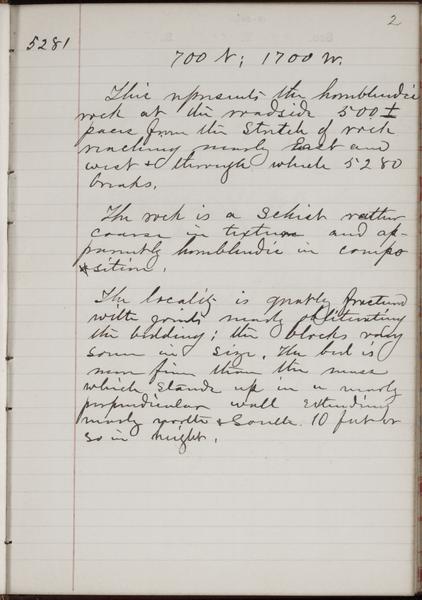 2
5281
700 N; 1700 W.
This represents the hornblendic
rock at the roadside 500 ±
paces from the stretch of rock
reaching nearly East and
west & through which 5280
breaks.
The rock is a schist rather
coarse in texture and ap-
parently hornblendic in compo
sition.
The locality is greatly fractured
with joints nearly obliterating
the bedding; the blocks vary
some in size. The bed is
seen from the mass
which stands up in a nearly
perpendicular wall extending
nearly north & South. 10 feet or
so in height.